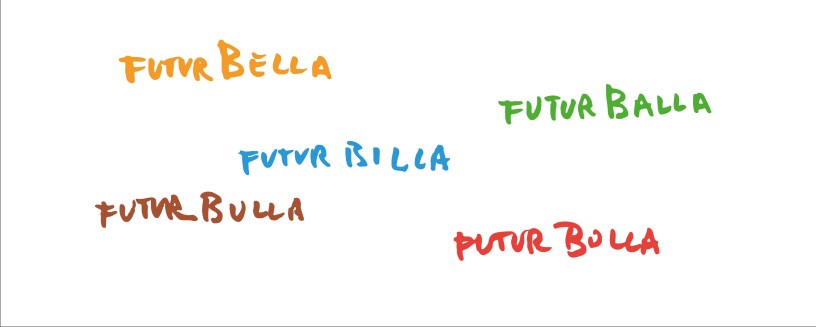 FUTUR BELLA
FUTUR BALLA
FUTUR BILLA
FUTUR BULLA
FUTUR BOLLA